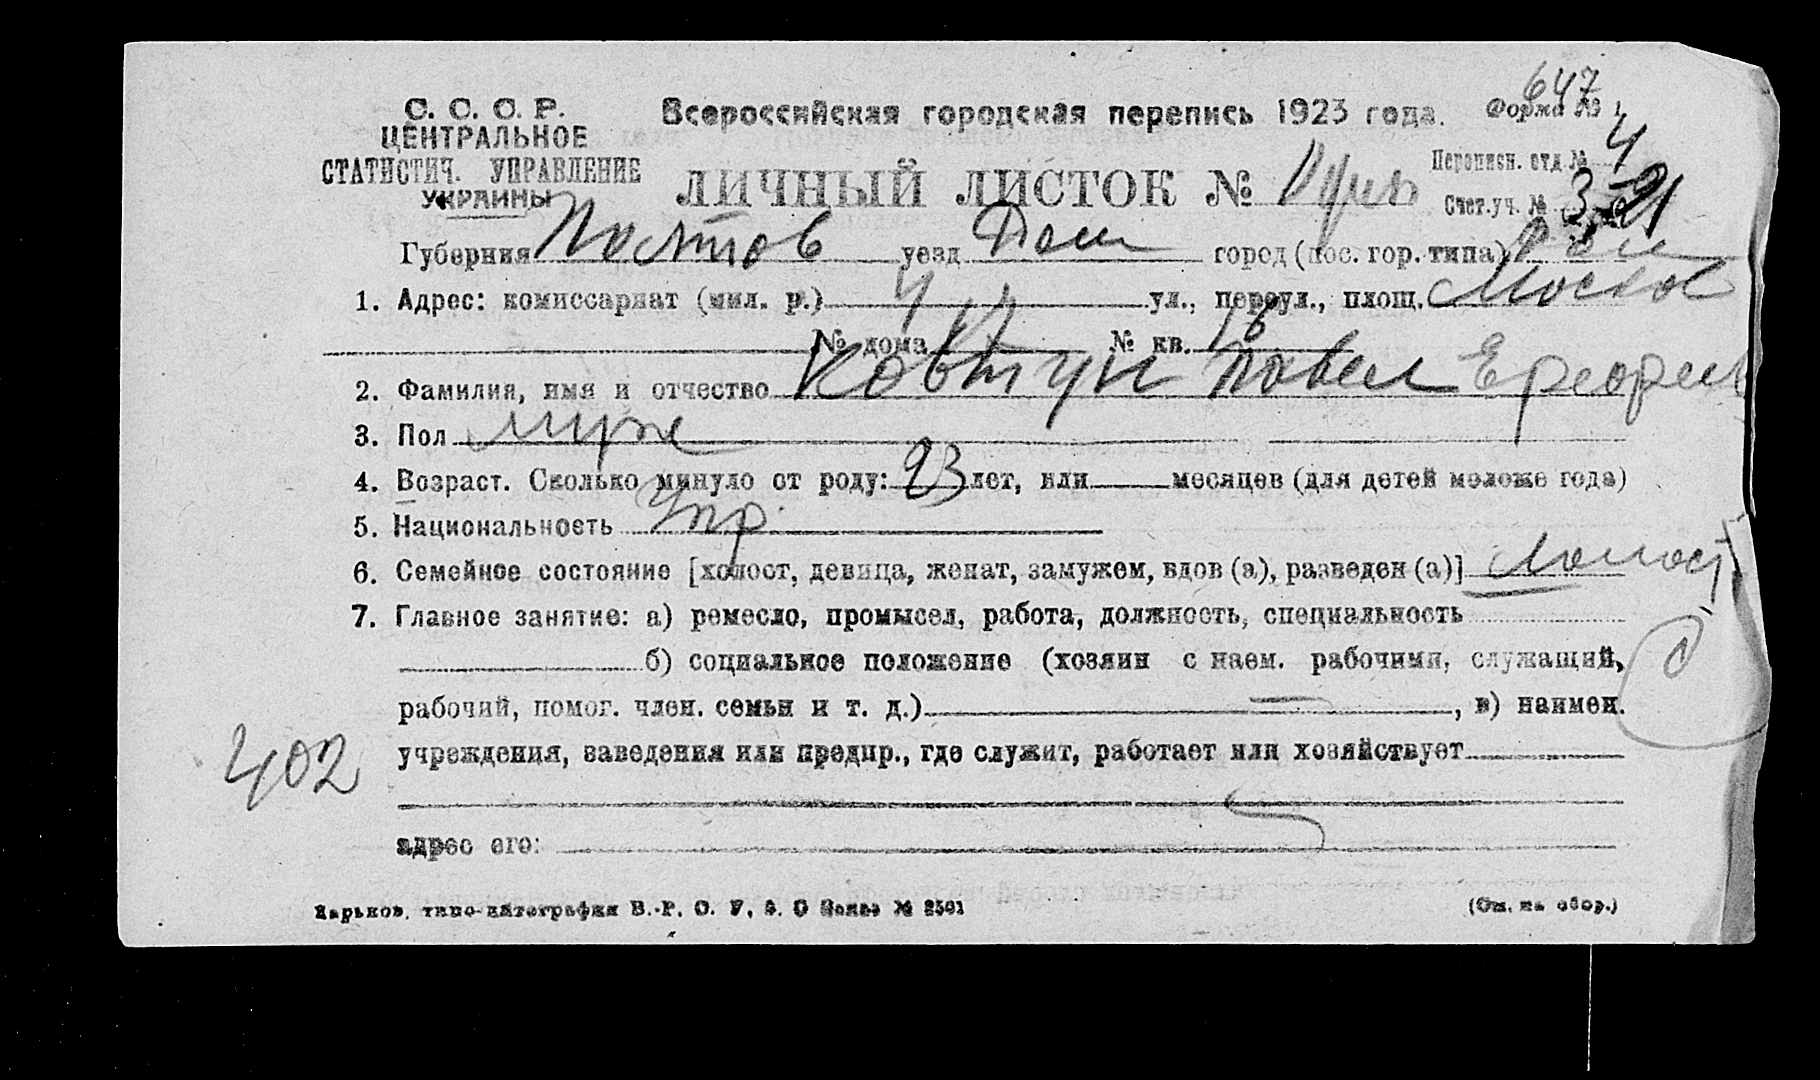 647
С. С. С. Р. Всероссийская городская перепись 1923 года. Форма № 1
ЦЕНТРАЛЬНОЕ
СТАТИСТИЧ. УПРАВЛЕНИЕ
УКРАИНЫ
ЛИЧНЫЙ ЛИСТОК №
Переписн. отд. № 4
Счет. уч. № 3
Губерния Полтов уезд город (пос. гор. типа)
1. Адрес: комиссариат (мил. р.) 4 ул., переул., площ. Москов
№ дома № кв.
2. Фамилия, имя и отчество Ковтун Павел
3. Пол муж
4. Возраст. Сколько минуло от роду: 23 лет, или месяцев (для детей моложе года)
5. Национальность Укр.
6. Семейное состояние [холост, девица, женат, замужем, вдов (а), разведен (а)] холост
7. Главное занятие: а) ремесло, промысел, работа, должность, специальность
б) социальное положение (хозяин с наем. рабочими, служащий,
рабочий, помог. член. семьи и т. д.) — , в) наимен.
учреждения, заведения или предпр., где служит, работает или хозяйствует
402
адрес его:
Харьков, типо-литография В.-Р. О. У. В. О Заказ № 2501 (См. на обор.)